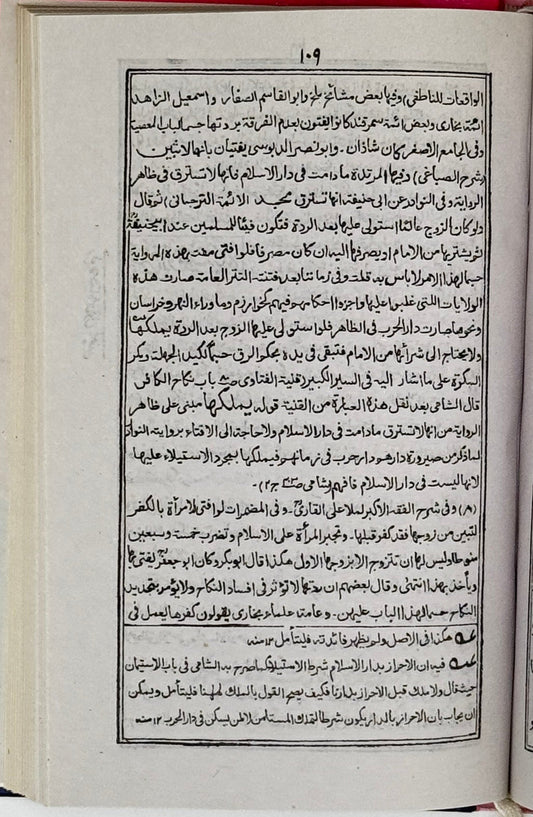 ١٠٩
الواقعات للناطفي) وفيها بعض مشائخ بلخ وابو القاسم الصفار واسمعيل الزاهد
ائمة بخارى وبعض ائمة سمرقند كانوا يفتون بعدم الفرقة بردتها حسما لباب المعصية
وفى الجامع الاصغر كان شاذان وابو نصر الدبوسى يفتيان بانها لا تبين
(شرح الصباغى) وفيها المرتدة ما دامت فى دار الاسلام فانها لا تسترق فى ظاهر
الرواية وفى النوادر عن ابى حنيفة انها تسترق مجد الائمة الترجمانى) ثم قال
ولو كان الزوج عالما استولى عليها بعد الردة فتكون فيئا للمسلمين عند ابيحنيفة
ثم يشتريها من الامام او يصرفها اليه ان كان مصرفا فلو افتى مفت بهذه الرواية
حسما لهذا الامر لا باس به قلت وفى زماننا بعد فتنة التتر العامة صارت هذه
الولايات اللتى غلبوا عليها واجروا احكامهم فيها كخوارزم وما وراء النهر وخراسان
ونحوها صارت دار الحرب فى الظاهر فلو استولى عليها الزوج بعد الردة يملكها
ولا يحتاج الى شرائها من الامام فتبقى فى يده بحكم الرق حسما لكيد الجهلة ومكر
المكرة على ما اشار اليه فى السير الكبير (قنية الفتاوى باب نكاح الكافر
قال الشامى بعد نقل هذه العبارة من القنية قوله يملكها مبنى على ظاهر
الرواية من انها لا تسترق ما دامت فى دار الاسلام ولا حاجة الى الافتاء برواية النوادر
لما ذكر من صيرورة دارهم دار حرب فى زمانهم فيملكها بمجرد الاستيلاء عليها
لانها ليست فى دار الاسلام فافهم (شامى ج٢) -
(٨) وفى شرح الفقه الاكبر لملا على القارى - وفى المضمرات لو افتى لامرأة بالكفر
لتبين من زوجها فقد كفر قبلها - وتجبر المرأة على الاسلام وتضرب خمسة وسبعين
سوطا وليس لها ان تتزوج الا بزوجها الاول هكذا قال ابوبكر وكان ابو جعفر يفتى بها
ويأخذ بهذا انتهى وقال بعضهم ان ردتها لا تؤثر فى افساد النكاح ولا يؤمر بتجديد
النكاح حسما لهذا الباب عليهن - وعامة علماء بخارى يقولون كفرها يعمل فى
عه هكذا فى الاصل ولم يظهر فائدته فليتأمل ١٢ منه
عه فيه ان الاحراز بدار الاسلام شرط الاستيلاء كما صرح به الشامى فى باب الاستيمان
حيث قال ولا ملك قبل الاحراز بدارنا فكيف يصح القول بالملك لههنا فليتأمل ويمكن
ان يجاب بان الاحراز بالدار يكون شرطا لتملك المستأمن لا لمن يسكن فى دار الحرب ١٢ منه